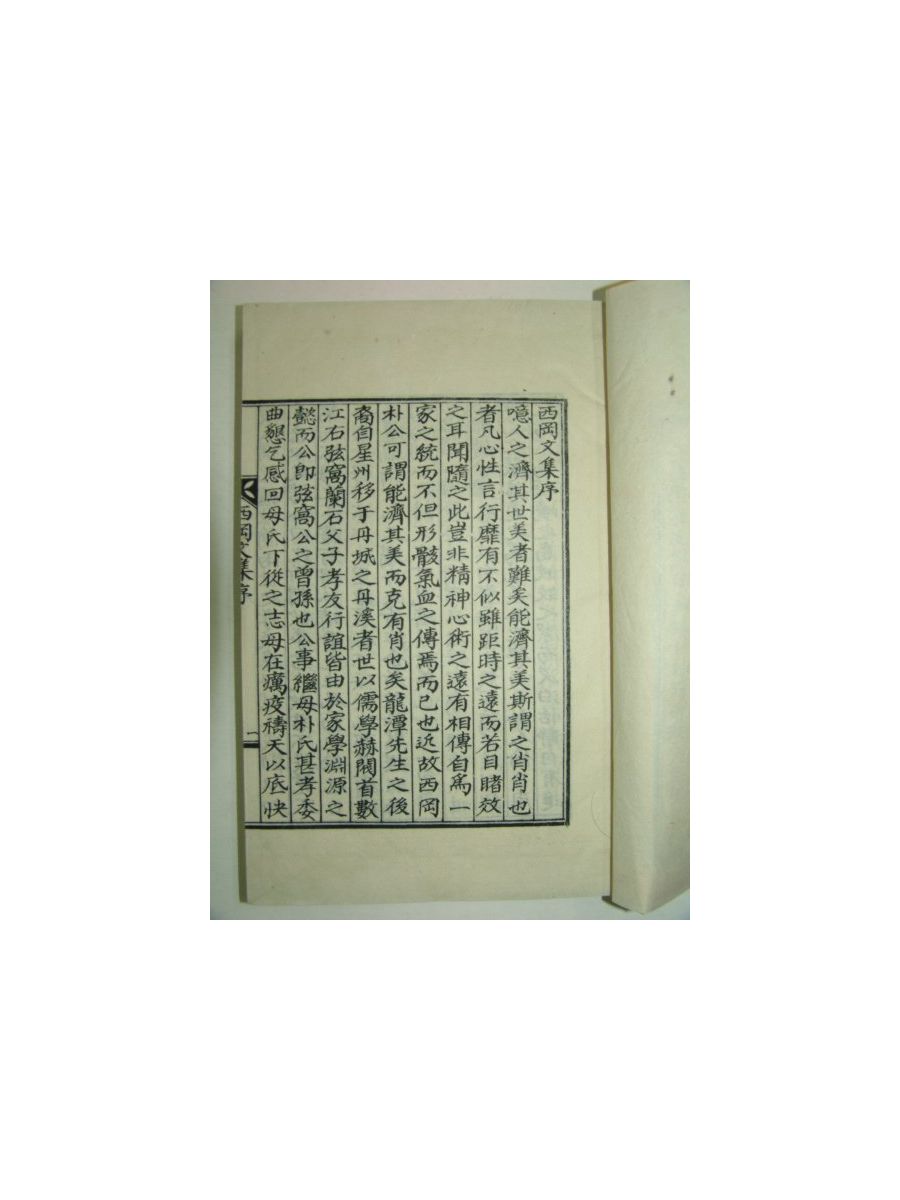 西岡文集序
噫人之濟其世美者難矣能濟其美斯謂之肖肖也
者凡心性言行靡有不似雖距時之遠而若目睹效
之耳聞隨之此豈非精神心術之遠有相傳自爲一
家之統而不但形骸氣血之傳焉而已也近故西岡
朴公可謂能濟其美而克有肖也矣龍潭先生之後
裔自星州移于丹城之丹溪者世以儒學赫閥首數
江右弦窩蘭石父子孝友行誼皆由於家學淵源之
懿而公即弦窩公之曾孫也公事繼母朴氏甚孝委
曲懇乞感回母氏下從之志母在癘疫禱天以底快
西岡文集序
一